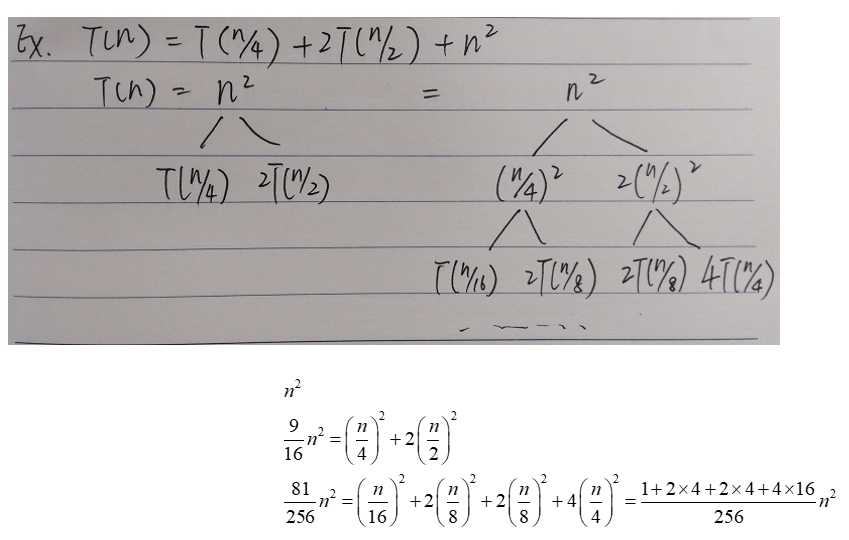 Ex. T(n) = T(n/4) + 2T(n/2) + n²
T(n) = n² = n²
T(n/4) 2T(n/2) (n/4)² 2(n/2)²
T(n/16) 2T(n/8) 2T(n/8) 4T(n/4)
n²
9/16 n² = (n/4)² + 2(n/2)²
81/256 n² = (n/16)² + 2(n/8)² + 2(n/8)² + 4(n/4)² = (1+2×4+2×4+4×16)/256 n²